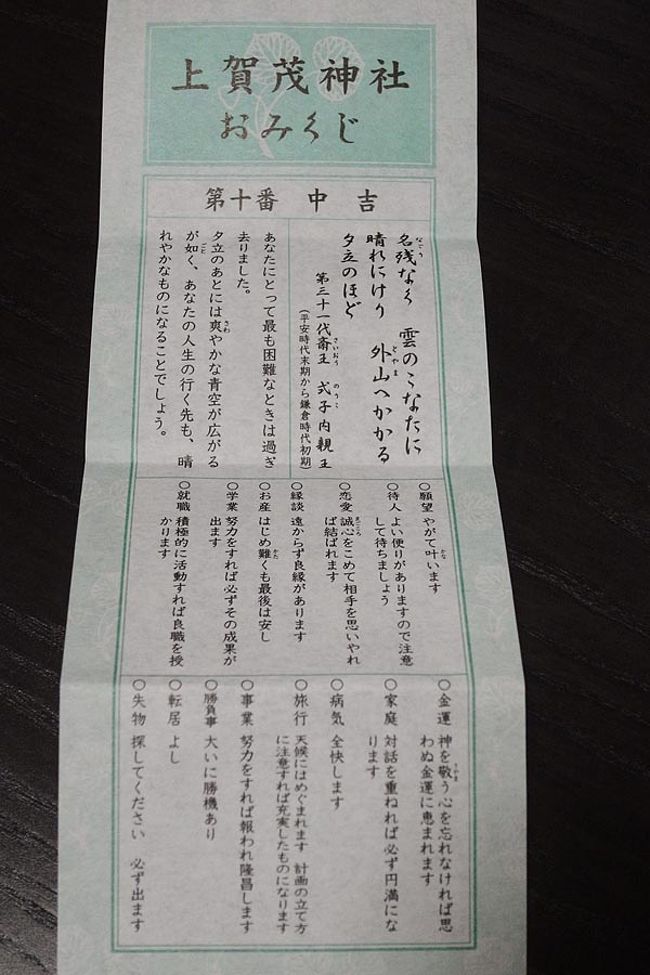 上賀茂神社
おみくじ
第十番 中吉
名残なく 雲のこなたに
晴れにけり 外山へかかる
夕立のほど
第三十一代斎王 式子内親王
(平安時代末期から鎌倉時代初期)
あなたにとって最も困難なときは過ぎ
去りました。
夕立のあとには爽やかな青空が広がる
が如く、あなたの人生の行く先も、晴
れやかなものになることでしょう。
○願望 やがて叶います
○待人 よい便りがありますので注意
して待ちましょう
○恋愛 誠心をこめて相手を思いやれ
ば結ばれます
○縁談 遠からず良縁があります
○お産 はじめ難くも最後は安し
○学業 努力をすれば必ずその成果が
出ます
○就職 積極的に活動すれば良職を授
かります
○金運 神を敬う心を忘れなければ思
わぬ金運に恵まれます
○家庭 対話を重ねれば必ず円満にな
ります
○病気 全快します
○旅行 天候にはめぐまれます 計画の立て方
に注意すれば充実したものになります
○事業 努力をすれば報われ隆昌します
○勝負事 大いに勝機あり
○転居 よし
○失物 探してください 必ず出ます